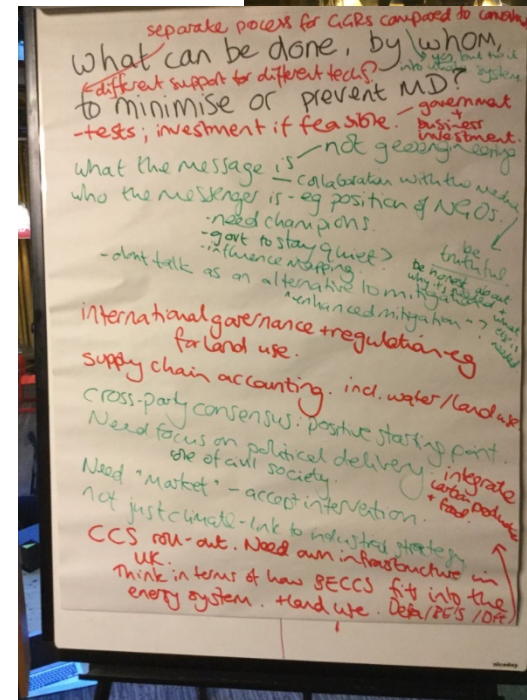 separate process for GGRs compared to
What can be done, by whom,
yes, but to it
into whole system.
different support for different techs?
to minimise or prevent MD?
- tests; investment if feasible. - government
+
business
investment.
What the message is - not geoengineering
- collaboration with the media
who the messenger is - eg position of NGOs.
- need champions.
- govt to stay quiet?
- influence mapping.
be
truthful.
be honest about
why it's needed +
what
else is
needed
- don't talk as an alternative to mitigation
"enhanced mitigation" - ?
international governance + regulation - eg
for land use.
supply chain accounting. incl. water/land use
cross-party consensus: positive starting point.
Need focus on political delivery.
role of civil society.
integrate
carbon products
+ food.
Need "market" - accept intervention.
not just climate - link to industrial strategy
CCS roll-out. Need own infrastructure in
UK.
Think in terms of how BECCS fits into the
energy system. + land use. Defra/BEIS/DfT